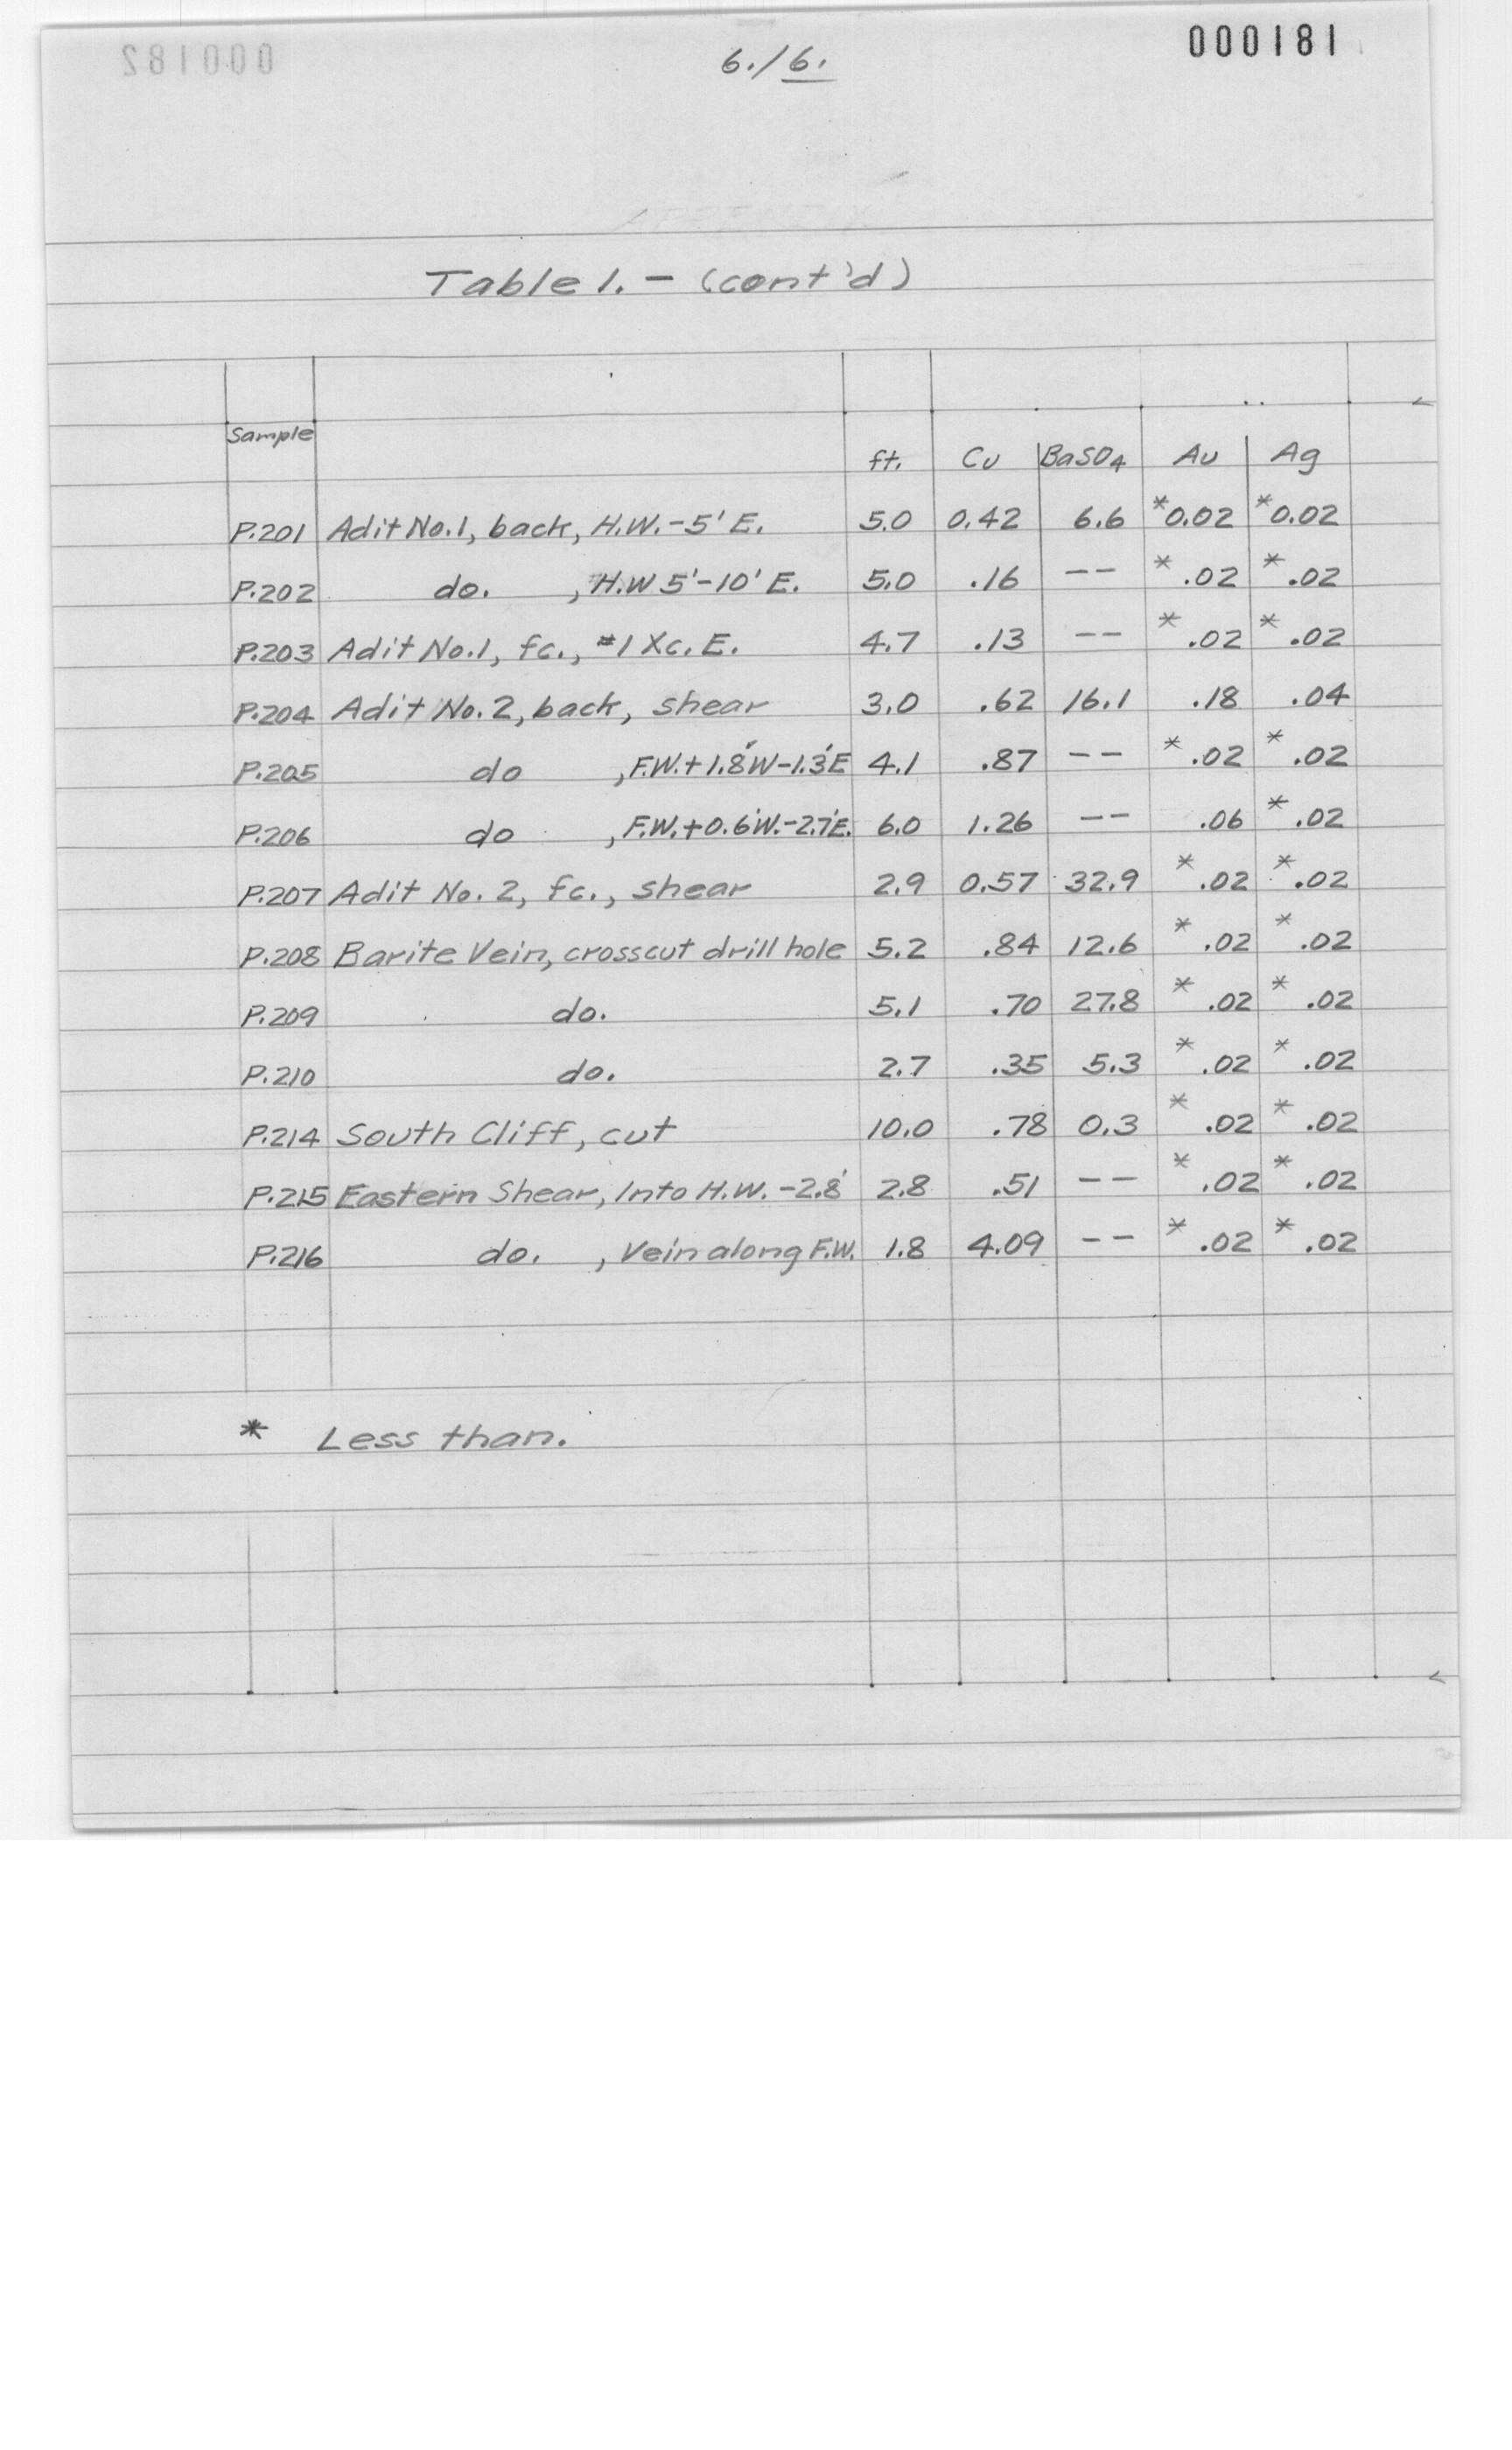 000182
6./6.
000181
Table 1. - (cont'd)
Sample ft. Cu BaSO4 Au Ag
P.201 Adit No.1, back, H.W.-5' E. 5.0 0.42 6.6 *0.02 *0.02
P.202 do. , H.W 5'-10' E. 5.0 .16 -- * .02 * .02
P.203 Adit No.1, fc., #1 Xc. E. 4.7 .13 -- * .02 * .02
P.204 Adit No. 2, back, shear 3.0 .62 16.1 .18 .04
P.205 do , F.W.+1.8'W-1.3'E 4.1 .87 -- * .02 * .02
P.206 do , F.W.+0.6'W.-2.7'E. 6.0 1.26 -- .06 * .02
P.207 Adit No. 2, fc., shear 2.9 0.57 32.9 * .02 * .02
P.208 Barite Vein, crosscut drill hole 5.2 .84 12.6 * .02 * .02
P.209 do. 5.1 .70 27.8 * .02 * .02
P.210 do. 2.7 .35 5.3 * .02 * .02
P.214 South Cliff, cut 10.0 .78 0.3 * .02 * .02
P.215 Eastern Shear, Into H.W. -2.8' 2.8 .51 -- * .02 * .02
P.216 do. , Vein along F.W. 1.8 4.09 -- * .02 * .02
* Less than.